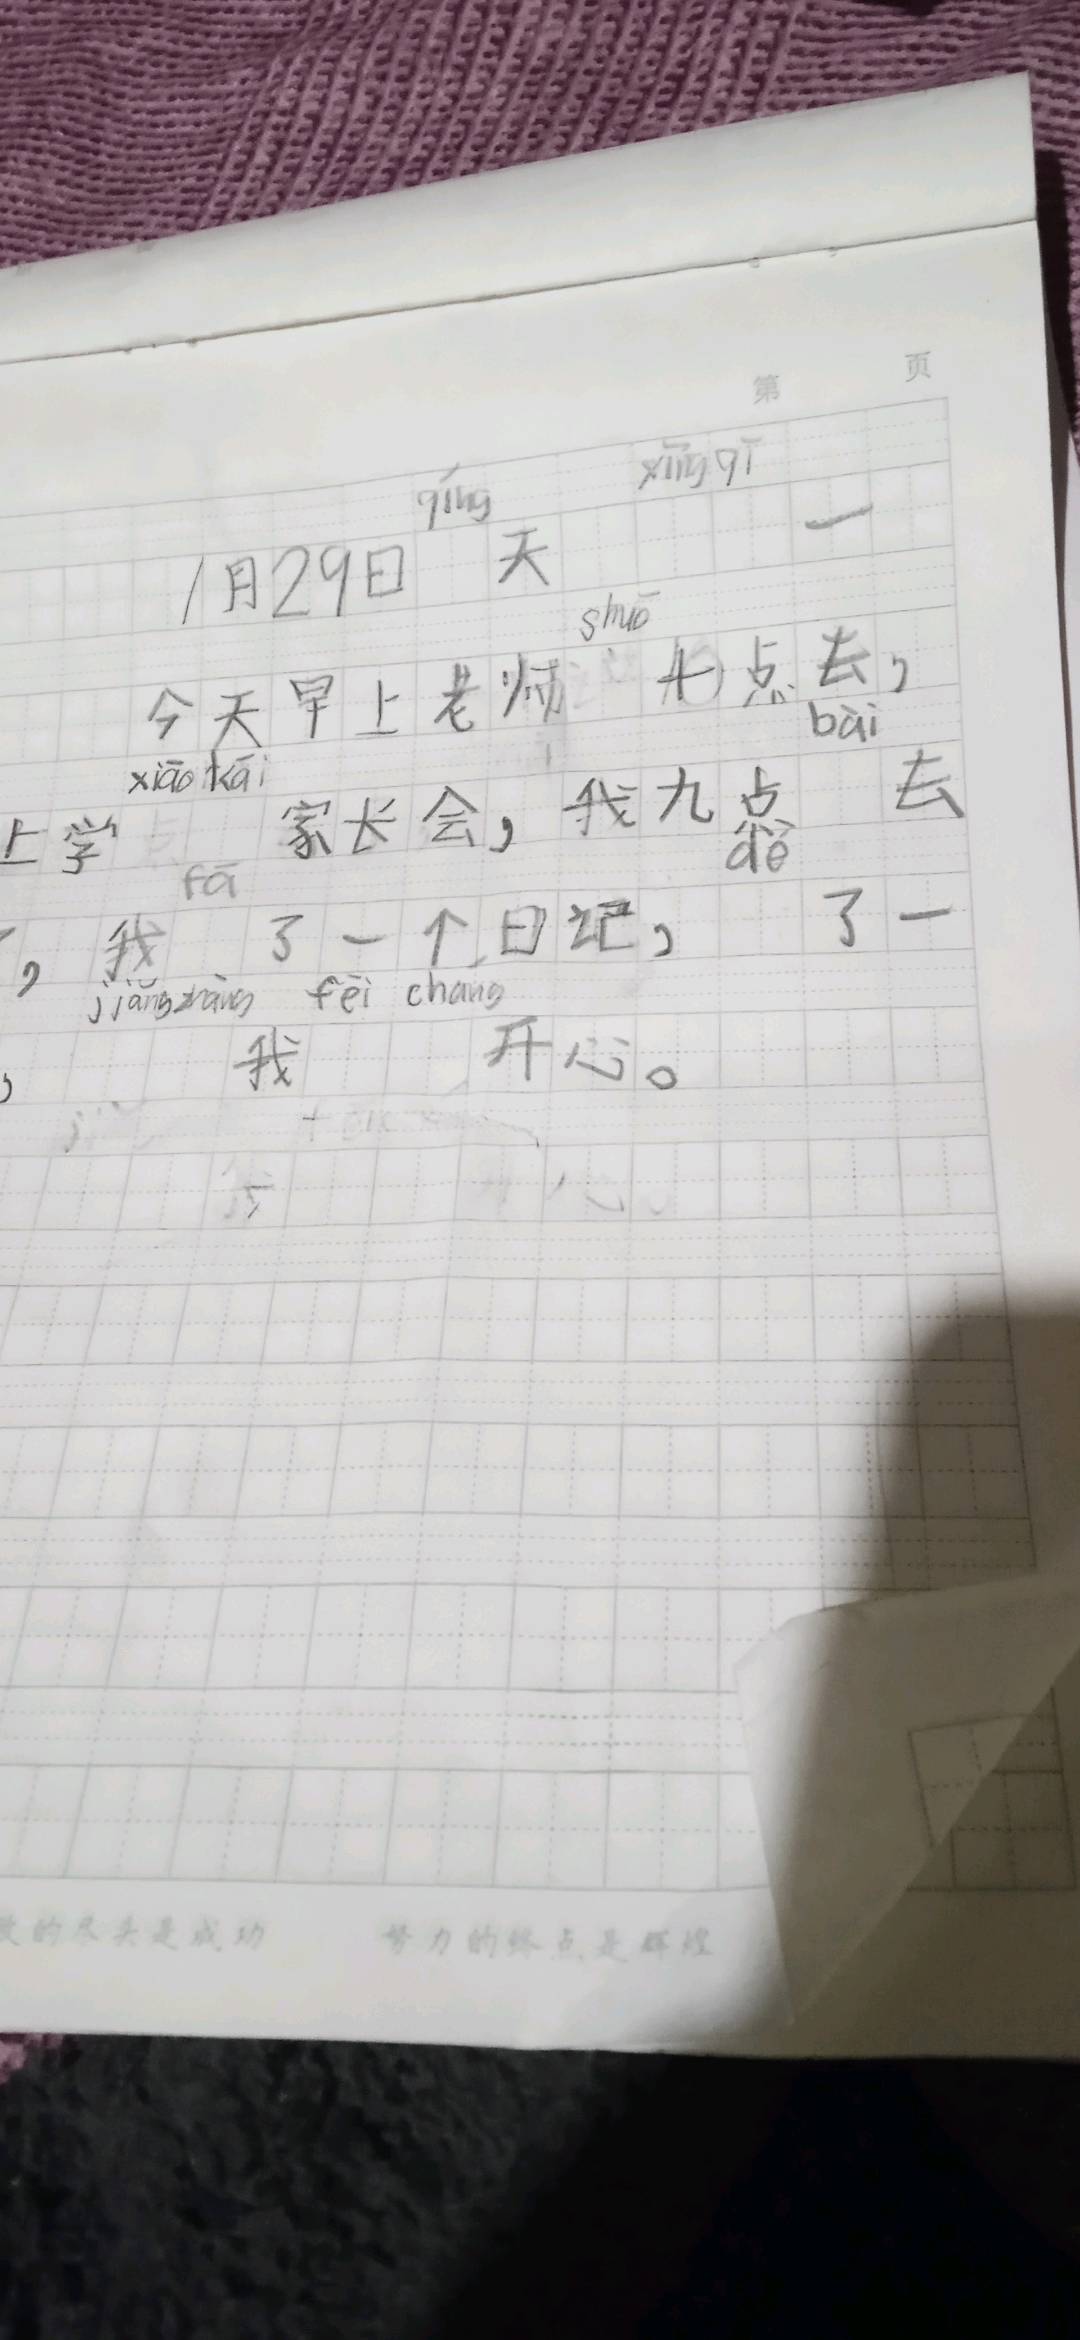 第 页
qíng xīng qī
1月29日 天 一
shuō
今天早上老师 九点去，
xiāo kāi bài
上学 家长会，我九点 去
fā dé
，我 了一个日记， 了一
jiǎng zhàng fēi cháng
， 我 开心。
的尽头是成功 努力的终点是辉煌